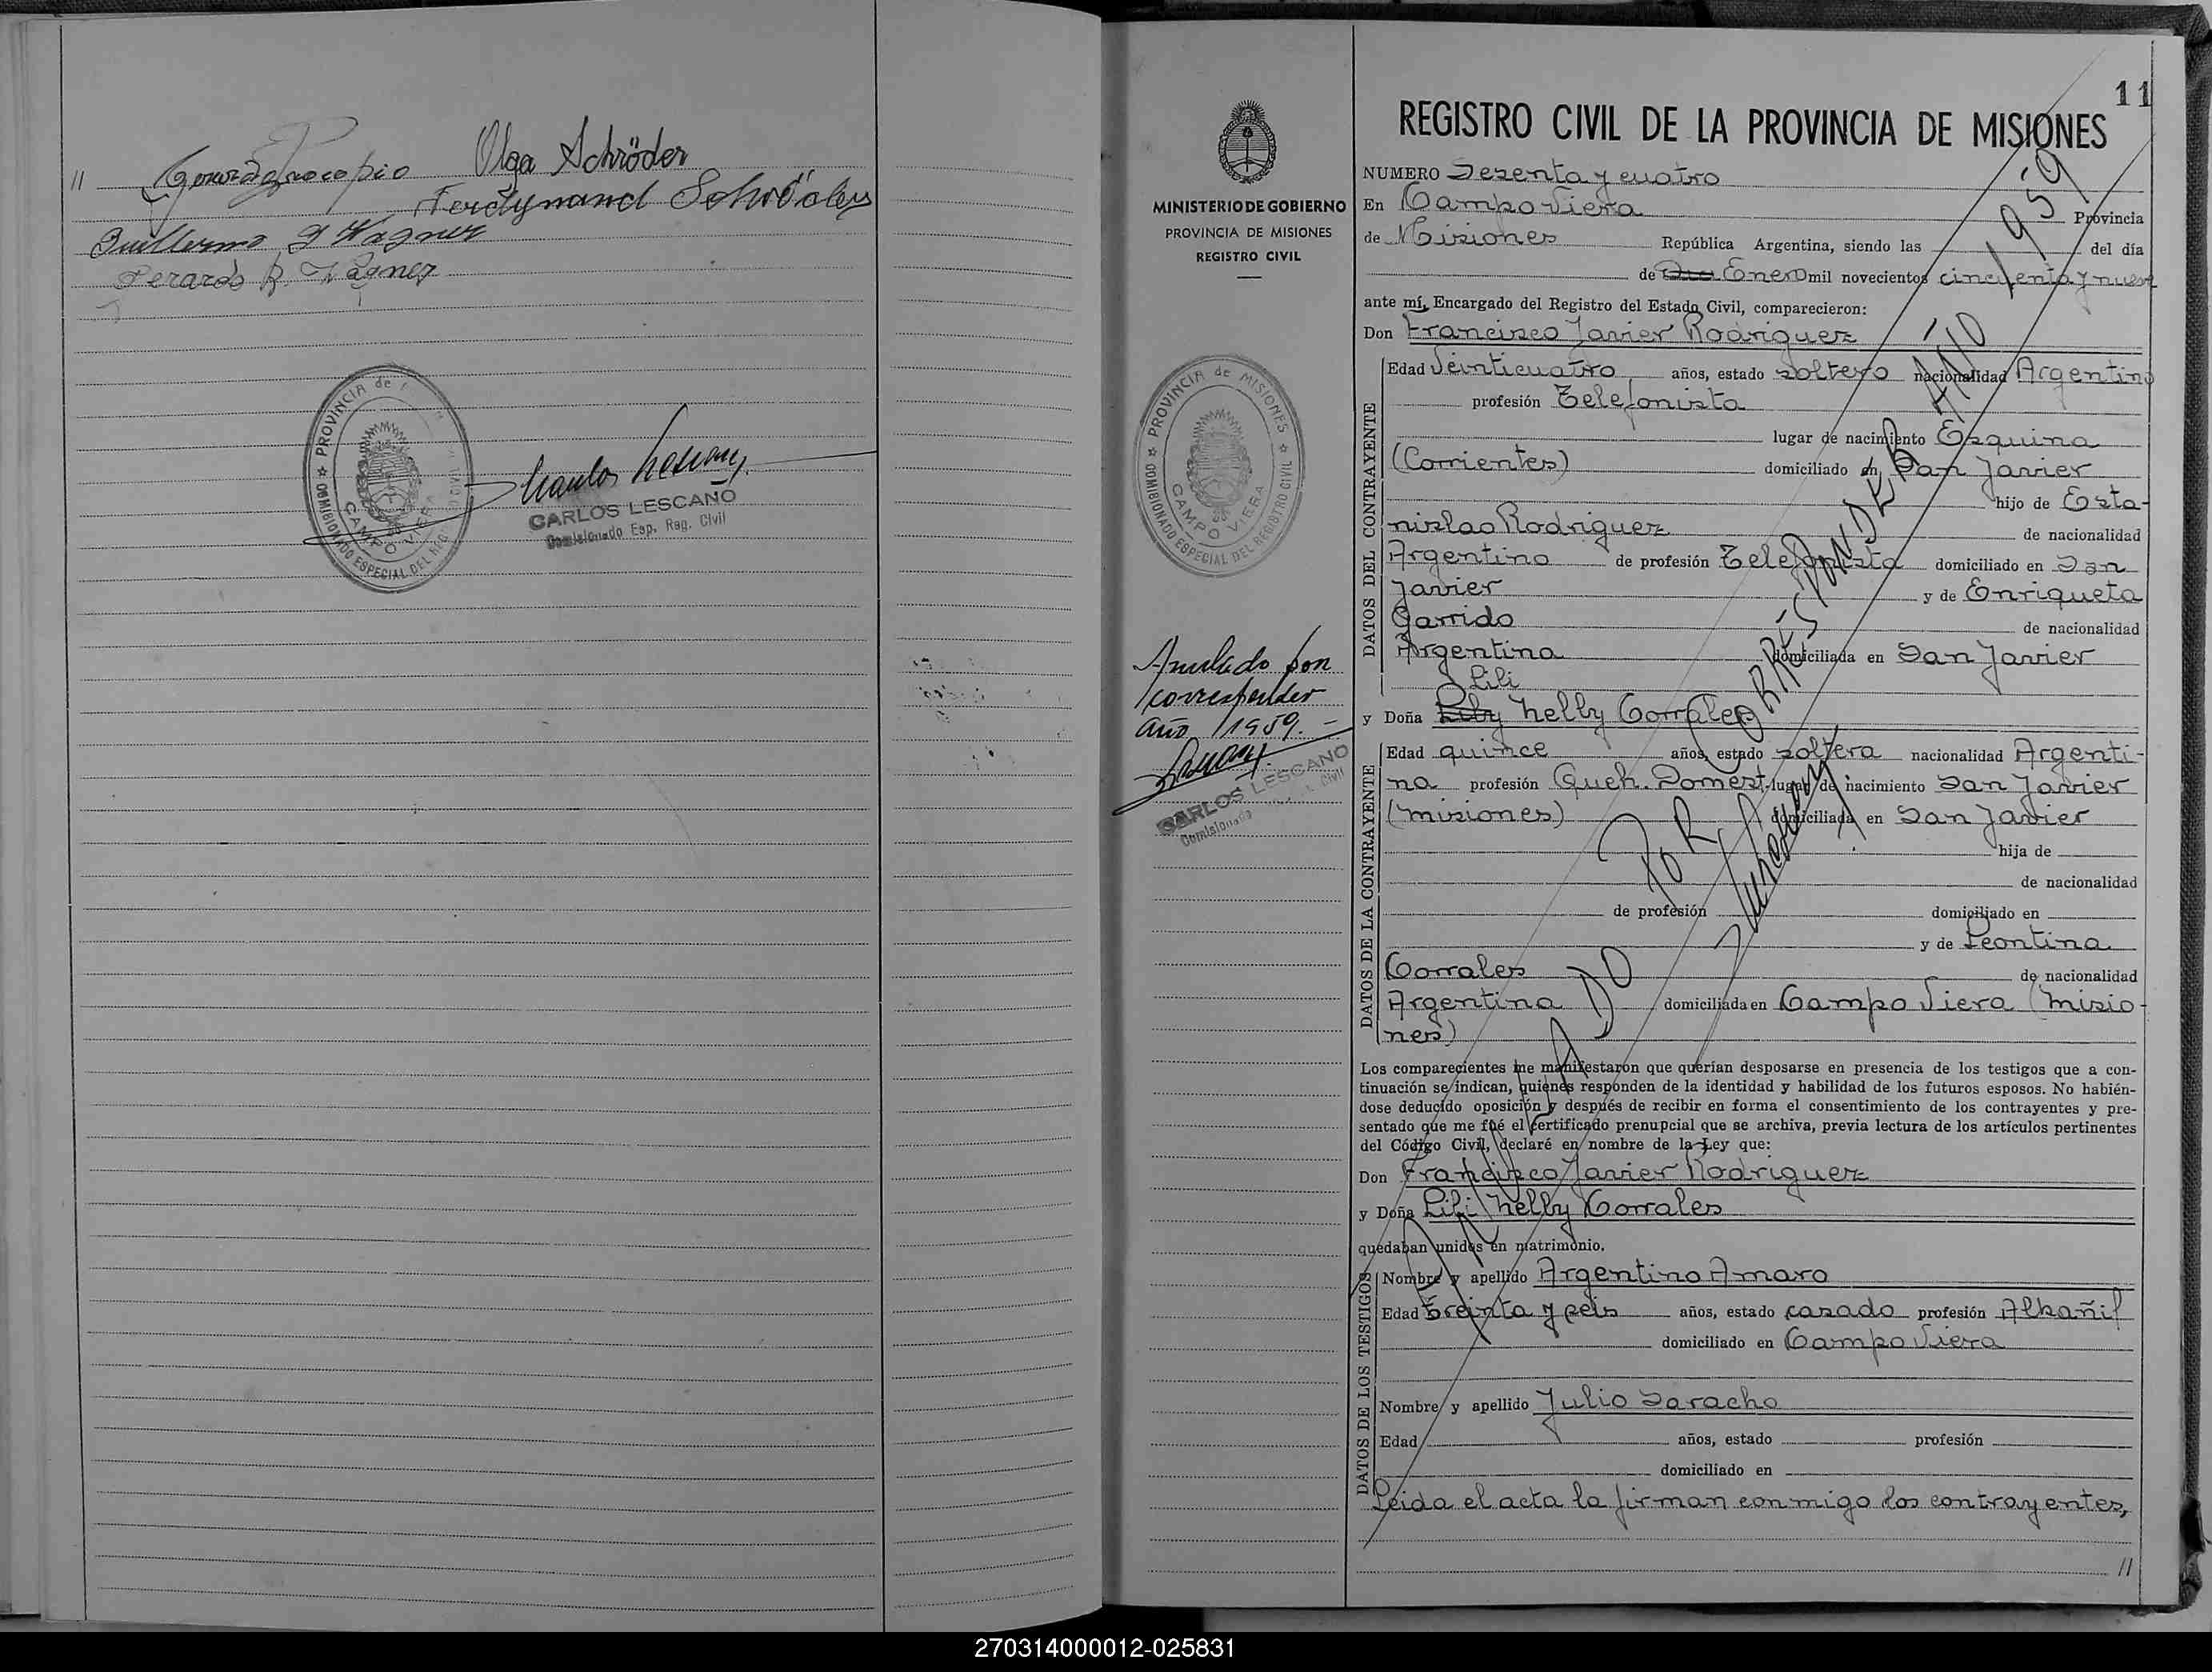 Olga Schröder
Ferdynand Schröder
Guillermo G Wagner
Gerardo R. Wagner
PROVINCIA de
COMISIONADO ESPECIAL DEL REG
CAMPO VIERA
CARLOS LESCANO
Comisionado Esp. Reg. Civil
MINISTERIO DE GOBIERNO
PROVINCIA DE MISIONES
REGISTRO CIVIL
PROVINCIA de MISIONES
COMISIONADO ESPECIAL DEL REGISTRO CIVIL
CAMPO VIERA
Anulado por
corresponder
año 1959.-
CARLOS LESCANO
Comisionado Civil
11
REGISTRO CIVIL DE LA PROVINCIA DE MISIONES
NUMERO Sesenta y cuatro
En Campo Viera Provincia
de Misiones República Argentina, siendo las del día
de Enero mil novecientos cincuenta y nueve
ante mí, Encargado del Registro del Estado Civil, comparecieron:
Don Francisco Javier Rodriguez
DATOS DEL CONTRAYENTE
Edad Veinticuatro años, estado soltero nacionalidad Argentino
profesión Telefonista
lugar de nacimiento Esquina
(Corrientes) domiciliado en San Javier
hijo de Esta-
nislao Rodriguez de nacionalidad
Argentino de profesión Telefonista domiciliado en San
Javier y de Enriqueta
Garrido de nacionalidad
Argentina domiciliada en San Javier
Lili
y Doña Lily Nelly Corrales
DATOS DE LA CONTRAYENTE
Edad quince años, estado soltera nacionalidad Argenti-
na profesión Queh. Domést. lugar de nacimiento San Javier
(Misiones) domiciliada en San Javier
hija de
de nacionalidad
de profesión domiciliado en
y de Leontina
Corrales de nacionalidad
Argentina domiciliada en Campo Viera (Misio-
nes)
ANULADO POR CORRESPONDER AÑO 1959
Los comparecientes me manifestaron que querían desposarse en presencia de los testigos que a con-
tinuación se indican, quienes responden de la identidad y habilidad de los futuros esposos. No habién-
dose deducido oposición y después de recibir en forma el consentimiento de los contrayentes y pre-
sentado que me fué el certificado prenupcial que se archiva, previa lectura de los artículos pertinentes
del Código Civil, declaré en nombre de la Ley que:
Don Francisco Javier Rodriguez
y Doña Lili Nelly Corrales
quedaban unidos en matrimonio.
DATOS DE LOS TESTIGOS
Nombre y apellido Argentino Amaro
Edad Treinta y seis años, estado casado profesión Albañil
domiciliado en Campo Viera
Nombre y apellido Julio Saracho
Edad años, estado profesión
domiciliado en
Leida el acta la firman conmigo los contrayentes,
//
270314000012-025831